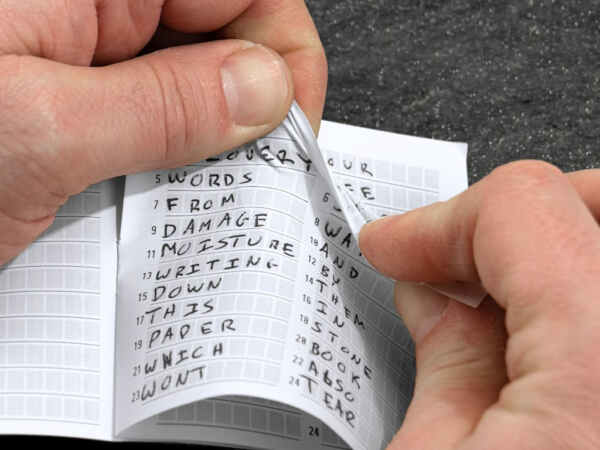 OVERY
5 WORDS
7 FROM
9 DAMAGE
11 MOISTURE
13 WRITING
15 DOWN
17 THIS
19 PAPER
21 WHICH
23 WONT
OUR
6
8 WA
10 AND
12 BY
14 THEM
16 IN
18 STONE
20 BOOK
22 ABSO
24 TEAR
24